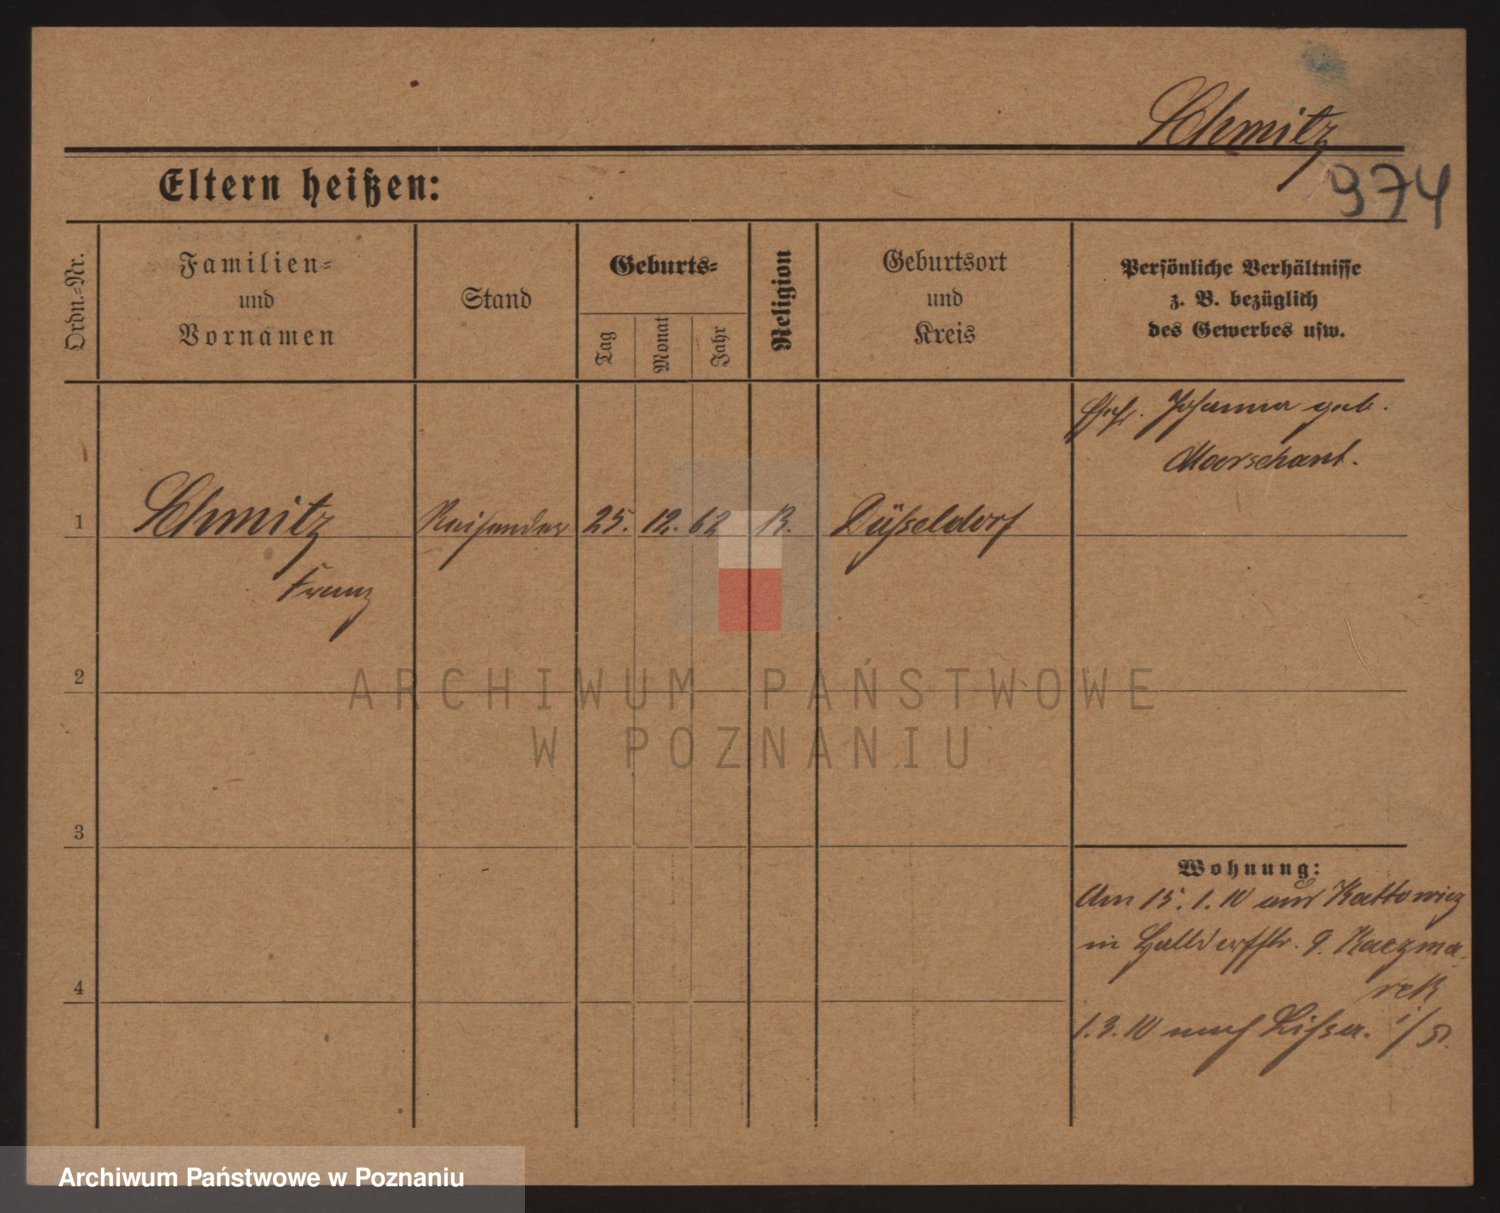 Schmitz
974
Eltern heißen:
Ordn.-Nr.
Familien-
und
Vornamen
Stand
Geburts-
Tag
Monat
Jahr
Religion
Geburtsort
und
Kreis
Persönliche Verhältnisse
z. B. bezüglich
des Gewerbes usw.
Ehefr. Johanna geb.
1 Schmitz Reisender 25. 12. 62 K. Düsseldorf
Franz
2
ARCHIWUM PAŃSTWOWE
W POZNANIU
3
Wohnung:
Am 15. 1. 10 aus Kattowicz
in 9. Kaczma-
rek
4
1.3.10 nach Lissa. i/P.
Archiwum Państwowe w Poznaniu